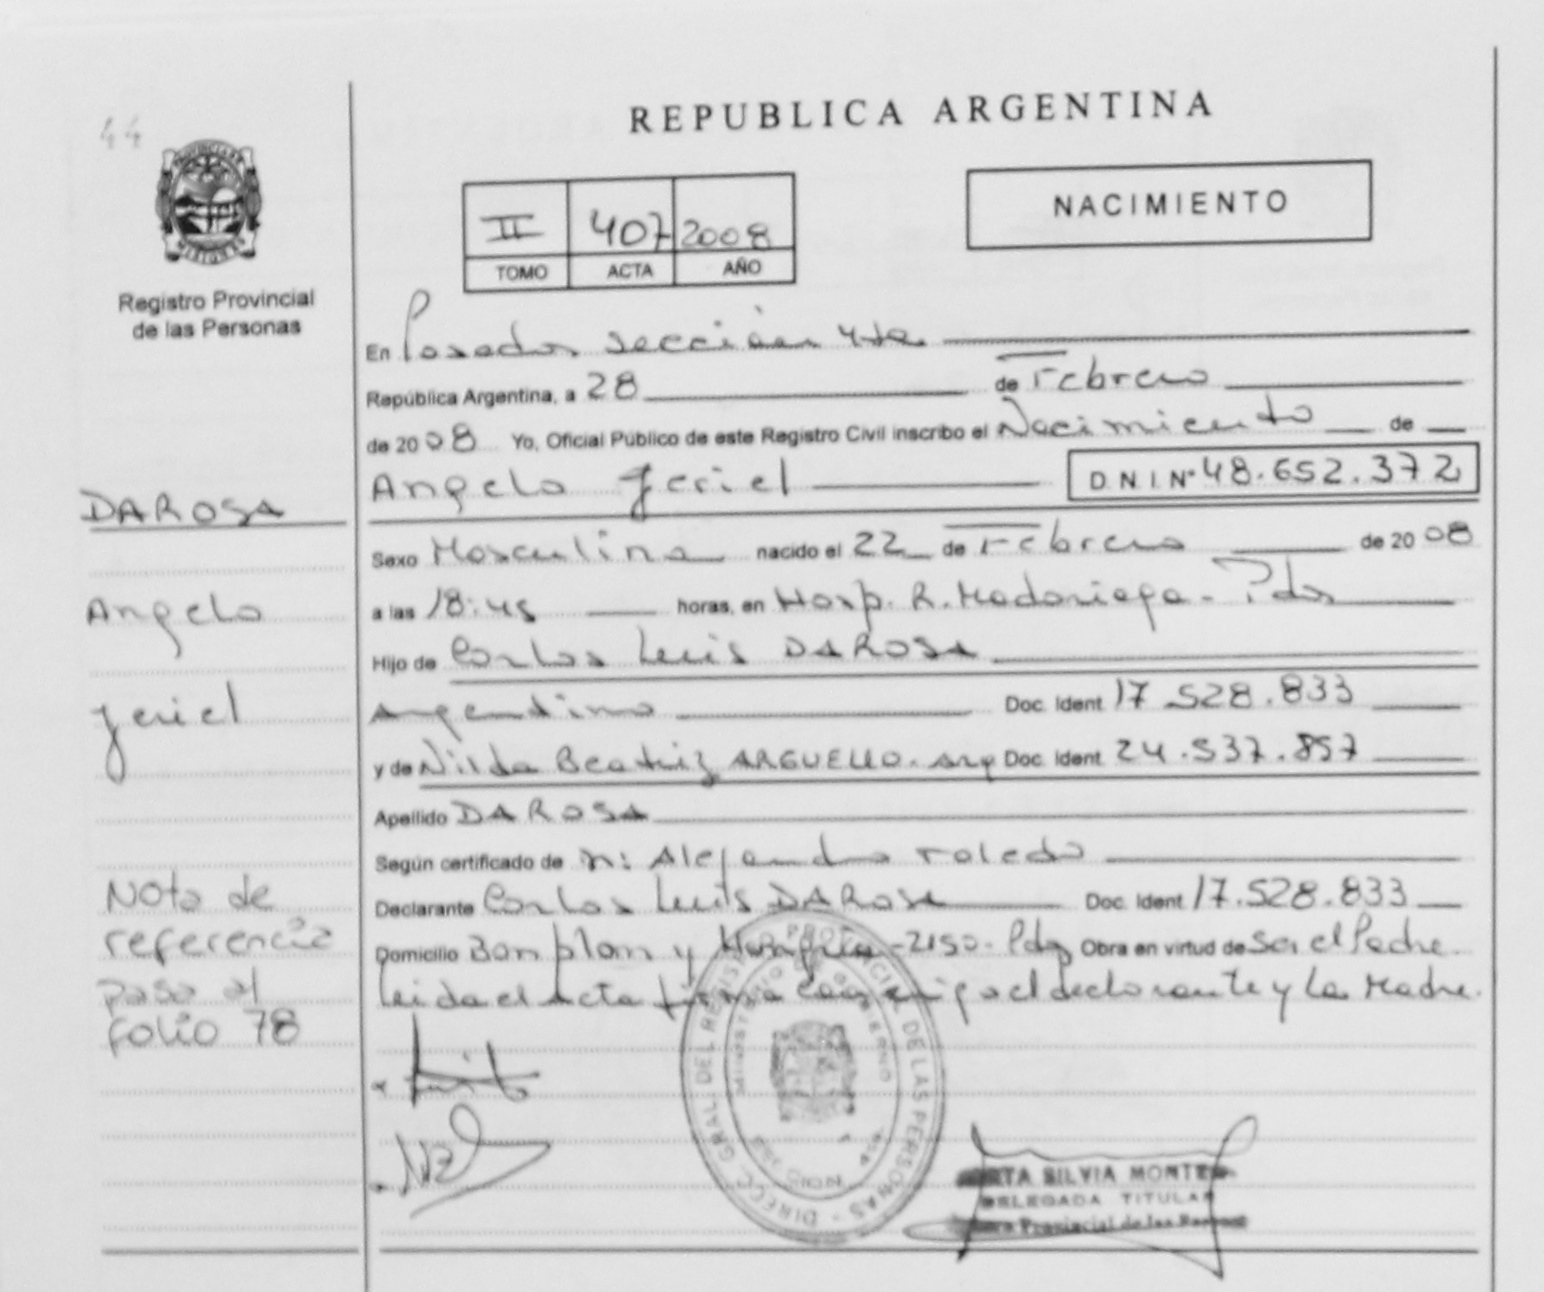 44
REPUBLICA ARGENTINA
NACIMIENTO
II 407 2008
TOMO ACTA AÑO
Registro Provincial
de las Personas
En Posadas sección 4ta
República Argentina, a 28 de Febrero
de 2008 Yo, Oficial Público de este Registro Civil inscribo el Nacimiento de
Angelo Jeriel D.N.I Nº 48.652.372
DAROSA
Sexo Masculino nacido el 22 de Febrero de 2008
Angelo
a las 18:45 horas, en Hosp. R. Madariaga - Pdas
Hijo de Carlos Luis DAROSA
Jeriel
Argentino Doc. Ident 17.528.833
y de Nilda Beatriz ARGUELLO. arg Doc. Ident. 24.537.857
Apellido DAROSA
Según certificado de n: Alejandro Toledo
Nota de
referencia
pasa al
folio 78
Declarante Carlos Luis DAROSA Doc. Ident 17.528.833
Domicilio Bonplan y Hungria - 2150 - Pdas Obra en virtud de Ser el Padre.
Leida el Acta firma conmigo el declarante y La Madre.
DIRECC. GRAL. DEL REGISTRO PROVINCIAL DE LAS PERSONAS
MINISTERIO DE GOBIERNO
SILVIA MONTE
DELEGADA TITULAR
Provincial de las Personas